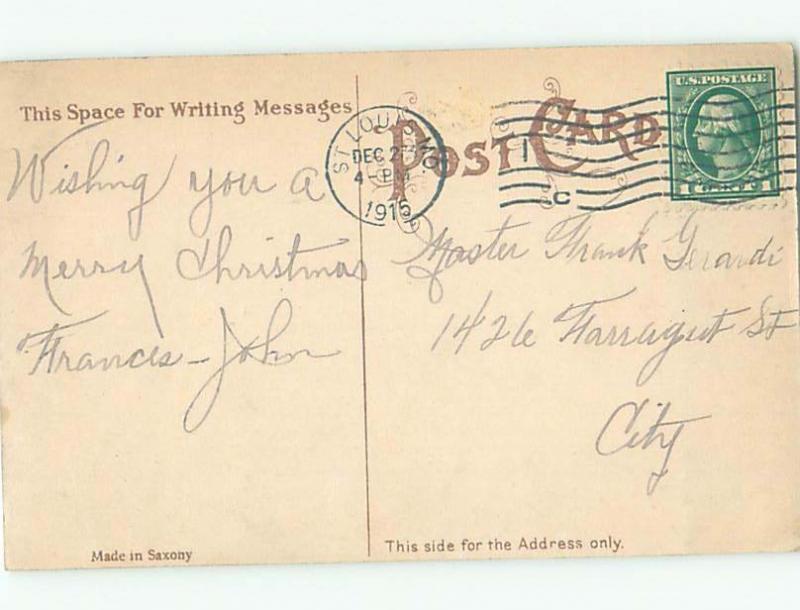 This Space For Writing Messages
POST CARD
U.S. POSTAGE
ST LOUIS, MO.
DEC 2
4 PM
1915
1
C
Wishing you a
Merry Christmas
Frances - John
Master Frank Gerardi
1426 Farragut St
City
Made in Saxony
This side for the Address only.